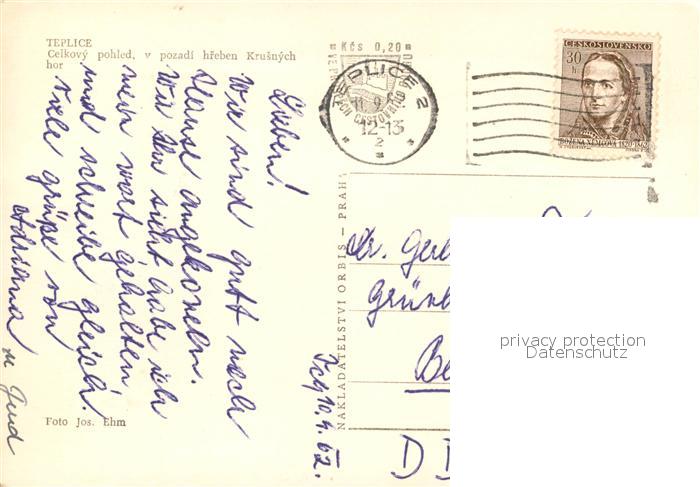 TEPLICE
Celkový pohled, v pozadí hřeben Krušných
hor
Kčs 0,20
TEPLICE 2
12-13
2
ČESKOSLOVENSKO
30
h
BOŽENA NĚMCOVÁ 1820-1862
Lieben!
Wir sind gutt nach
Hause angekomeln.
Wie du siehst habe ich
mein wort gehalten
und schreibe gleich.
viele grüße von
Adriana
u Gerd
NAKLADATELSTVÍ ORBIS — PRAHA
Dr. Ger
Grün
Be
D D
10.9.62.
Foto Jos. Ehm
privacy protection
Datenschutz